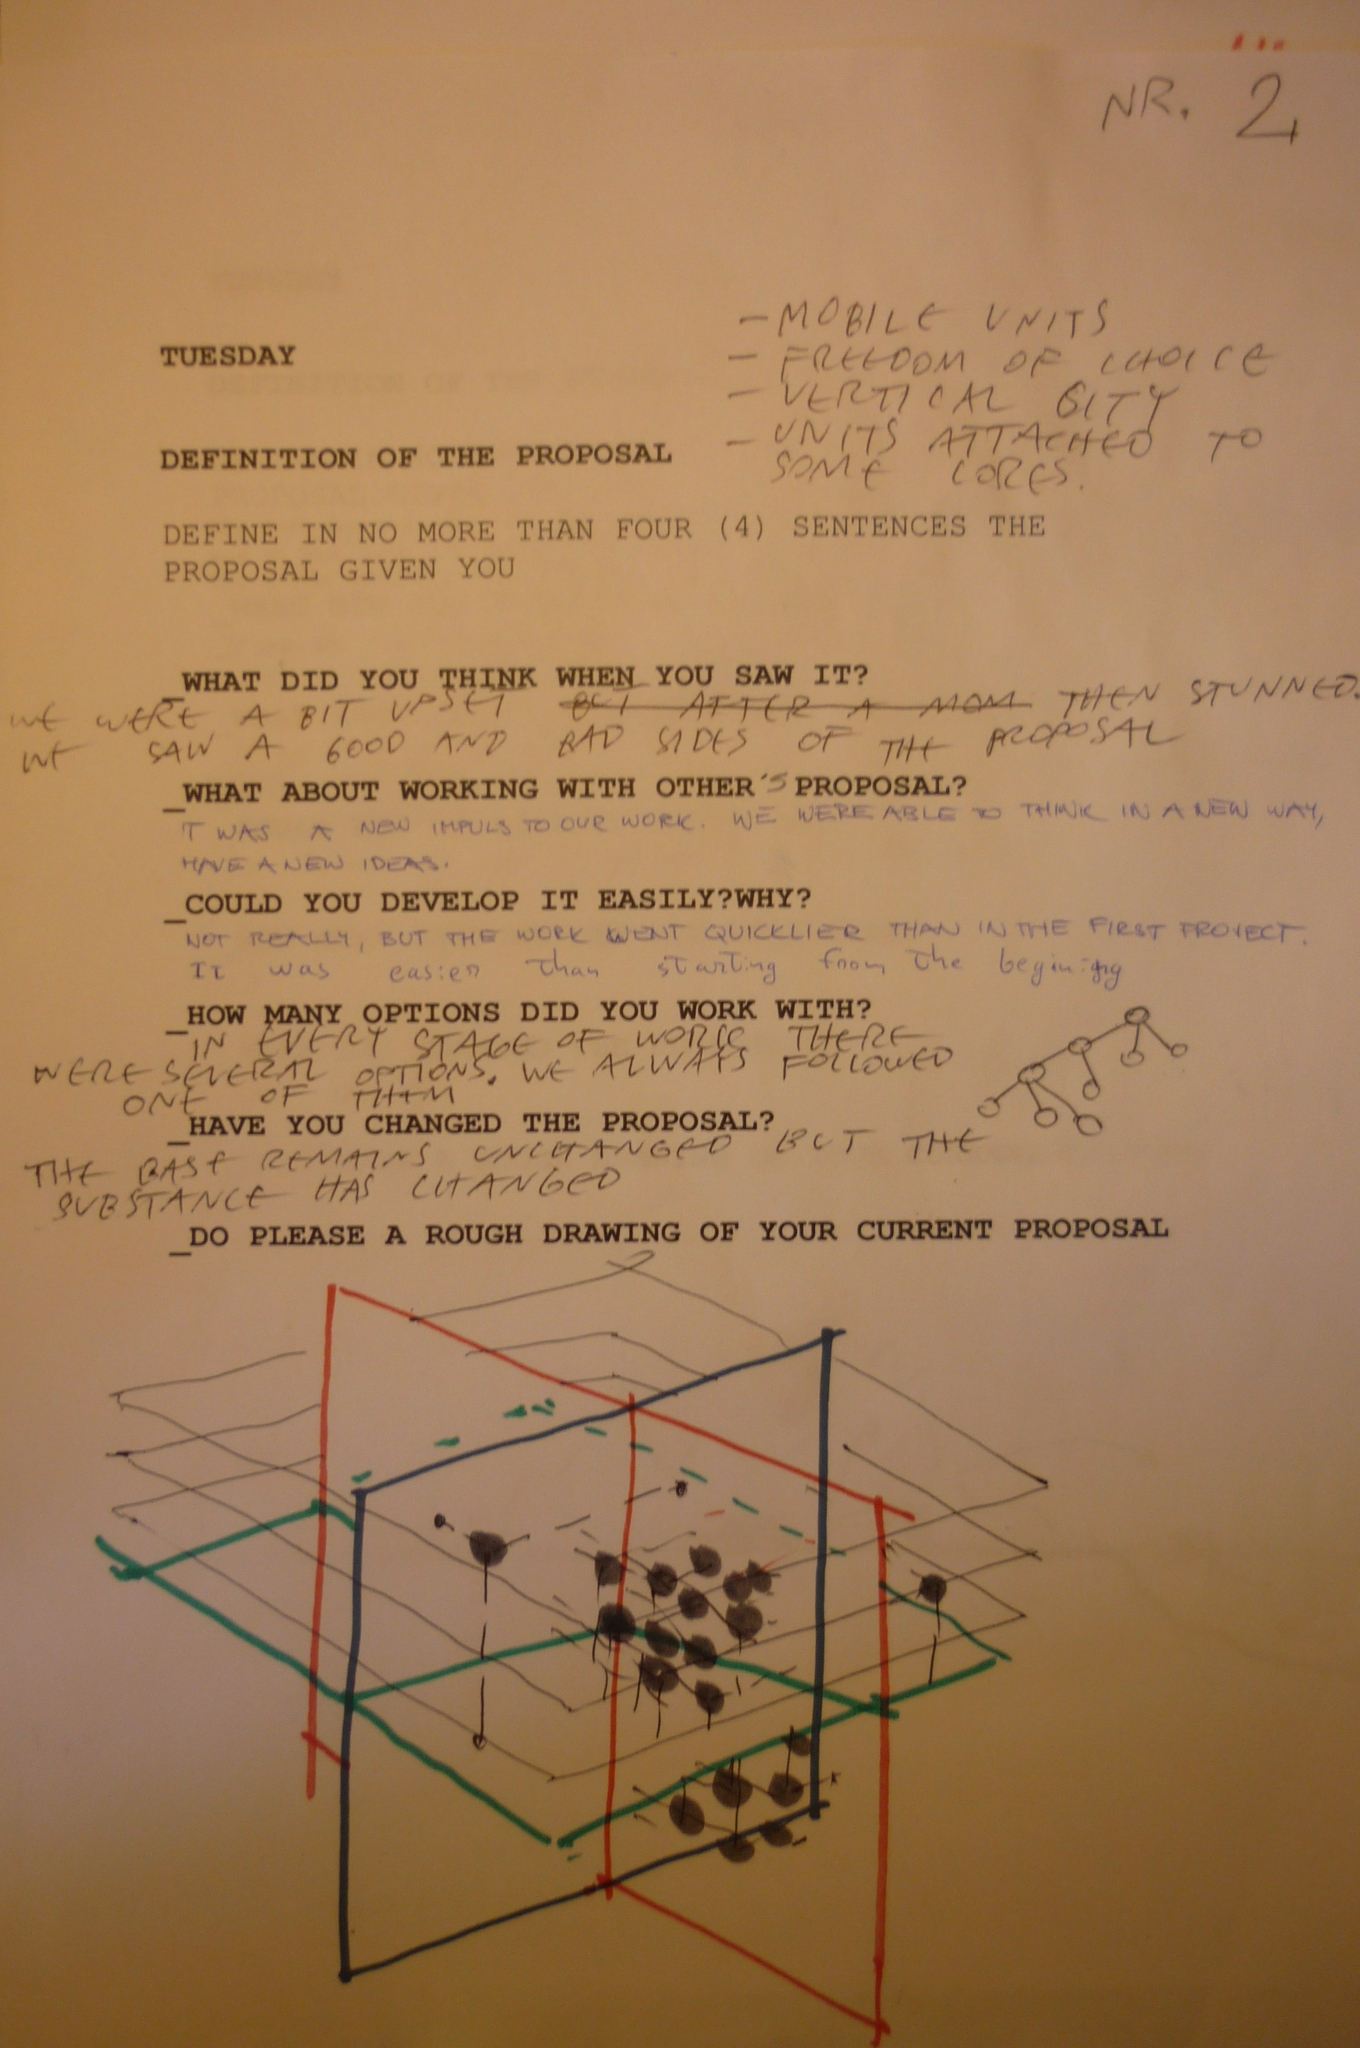 NR. 2
- MOBILE UNITS
TUESDAY
- FREEDOM OF CHOICE
- VERTICAL CITY
- UNITS ATTACHED TO
SOME CORES.
DEFINITION OF THE PROPOSAL
DEFINE IN NO MORE THAN FOUR (4) SENTENCES THE
PROPOSAL GIVEN YOU
_WHAT DID YOU THINK WHEN YOU SAW IT?
WE WERE A BIT UPSET BUT AFTER A MOM THEN STUNNED.
WE SAW A GOOD AND BAD SIDES OF THE PROPOSAL
_WHAT ABOUT WORKING WITH OTHER'S PROPOSAL?
IT WAS A NEW IMPULS TO OUR WORK. WE WERE ABLE TO THINK IN A NEW WAY,
HAVE A NEW IDEAS.
_COULD YOU DEVELOP IT EASILY?WHY?
NOT REALLY, BUT THE WORK WENT QUICKLIER THAN IN THE FIRST PROJECT.
It was easier than starting from the begining
_HOW MANY OPTIONS DID YOU WORK WITH?
IN EVERY STAGE OF WORK THERE
WERE SEVERAL OPTIONS. WE ALWAYS FOLLOWED
ONE OF THEM
_HAVE YOU CHANGED THE PROPOSAL?
THE BASE REMAINS UNCHANGED BUT THE
SUBSTANCE HAS CHANGED
_DO PLEASE A ROUGH DRAWING OF YOUR CURRENT PROPOSAL